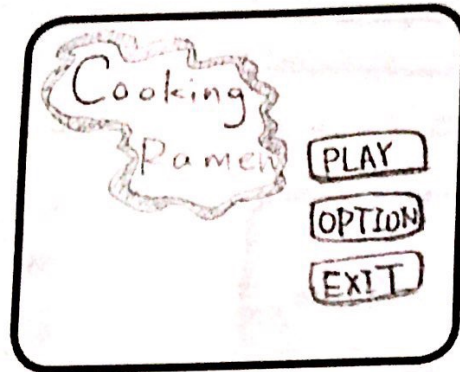 Cooking
Ramen
PLAY
OPTION
EXIT